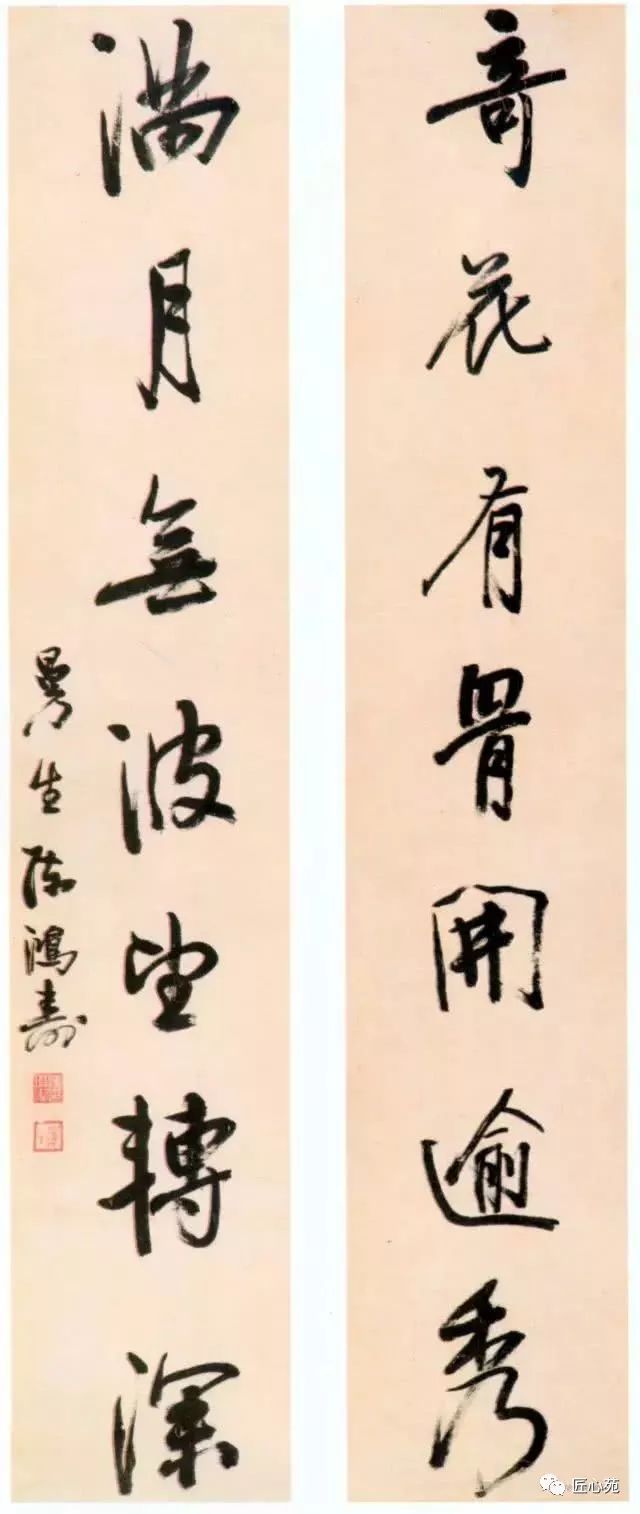 奇花有骨開逾秀
滿月無波望轉深
曼生陳鴻壽
匠心苑